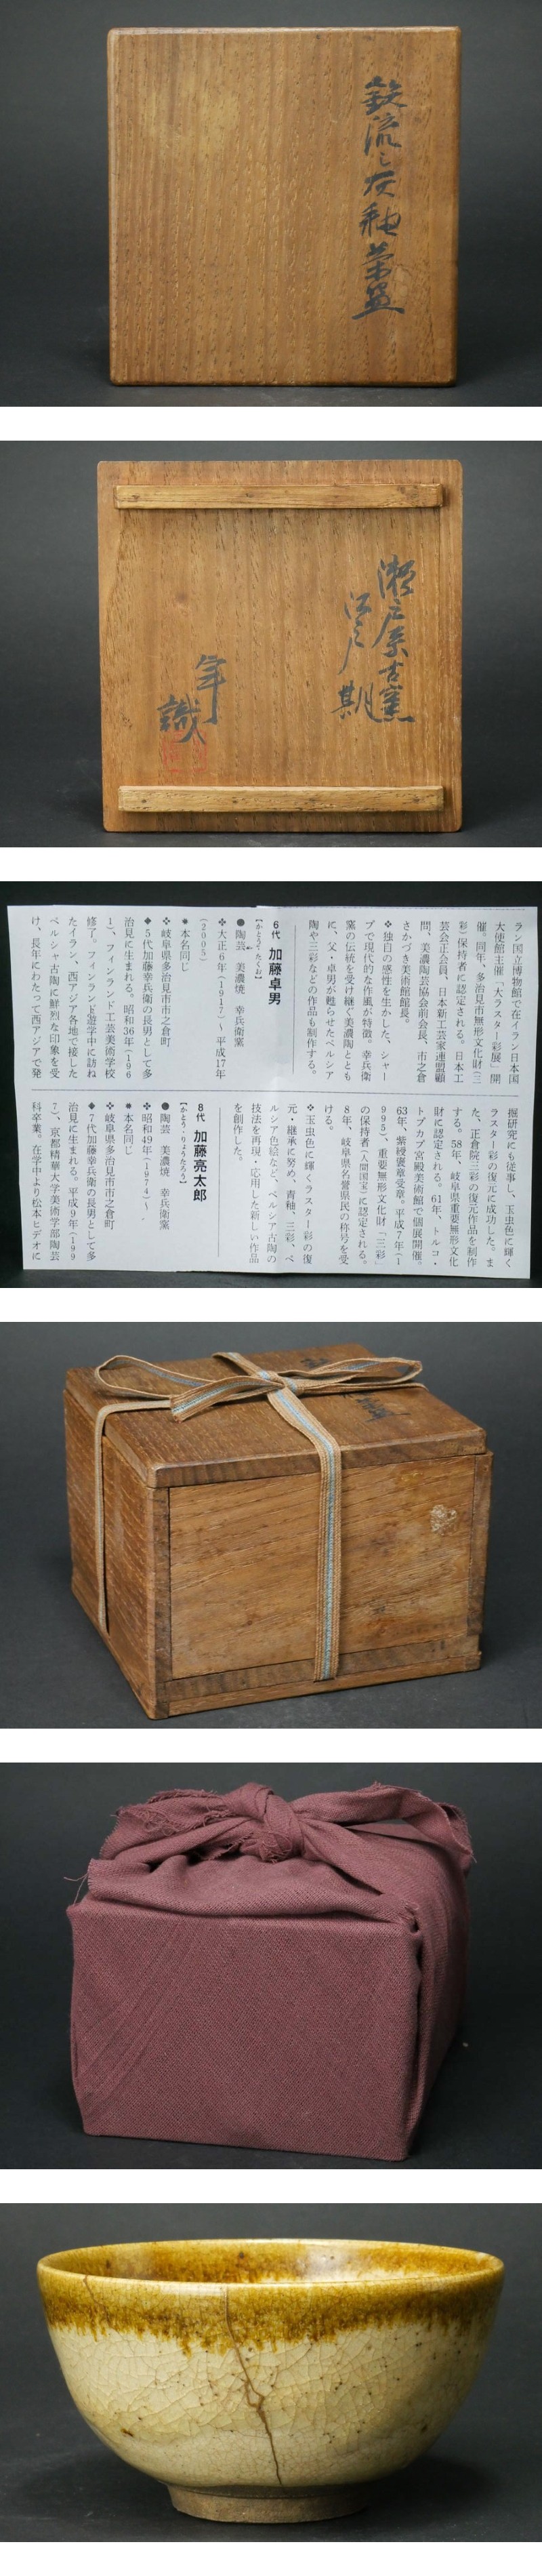 鉄流し灰釉茶盌
瀬戸系古窯
江戸期
卓
識
ラン国立博物館で在イラン日本国
大使館主催「大ラスター彩展」開
催。同年、多治見市無形文化財(三
彩)保持者に認定される。日本工
芸会正会員、日本新工芸家連盟顧
問、美濃陶芸協会前会長、市之倉
さかづき美術館館長。
❖独自の感性を生かした、シャー
プで現代的な作風が特徴。幸兵衛
窯の伝統を受け継ぐ美濃陶ととも
に、父・卓男が甦らせたペルシア
陶や三彩などの作品も制作する。
6代 加藤卓男
【かとう・たくお】
●陶芸 美濃焼 幸兵衛窯
❖大正6年(1917)〜平成17年
(2005)
✱本名同じ
❖岐阜県多治見市市之倉町
◆5代加藤幸兵衛の長男として多
治見に生まれる。昭和36年(196
1)、フィンランド工芸美術学校
修了。フィンランド遊学中に訪ね
たイラン、西アジア各地で接した
ペルシャ古陶に鮮烈な印象を受
け、長年にわたって西アジアで発
掘研究にも従事し、玉虫色に輝く
ラスター彩の復元に成功した。ま
た、正倉院三彩の復元作品を制作
する。58年、岐阜県重要無形文化
財に認定される。61年、トルコ・
トプカプ宮殿美術館で個展開催。
63年、紫綬褒章受章。平成7年(1
995)、重要無形文化財「三彩」
の保持者(人間国宝)に認定される。
8年、岐阜県名誉県民の称号を受
ける。
❖玉虫色に輝くラスター彩の復
元・継承に努め、青釉、三彩、ペ
ルシア色絵など、ペルシア古陶の
技法を再現・応用した新しい作品
を創作した。
8代 加藤亮太郎
【かとう・りょうたろう】
●陶芸 美濃焼 幸兵衛窯
❖昭和49年(1974)〜
✱本名同じ
❖岐阜県多治見市市之倉町
◆7代加藤幸兵衛の長男として多
治見に生まれる。平成9年(199
7)、京都精華大学美術学部陶芸
科卒業。在学中より松本ヒデオに